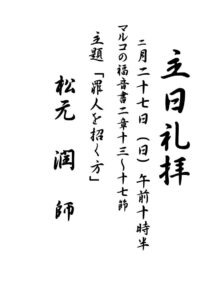 主日礼拝
二月二十七日(日)午前十時半
マルコの福音書二章十三〜十七節
主題「罪人を招く方」
松元 潤 師